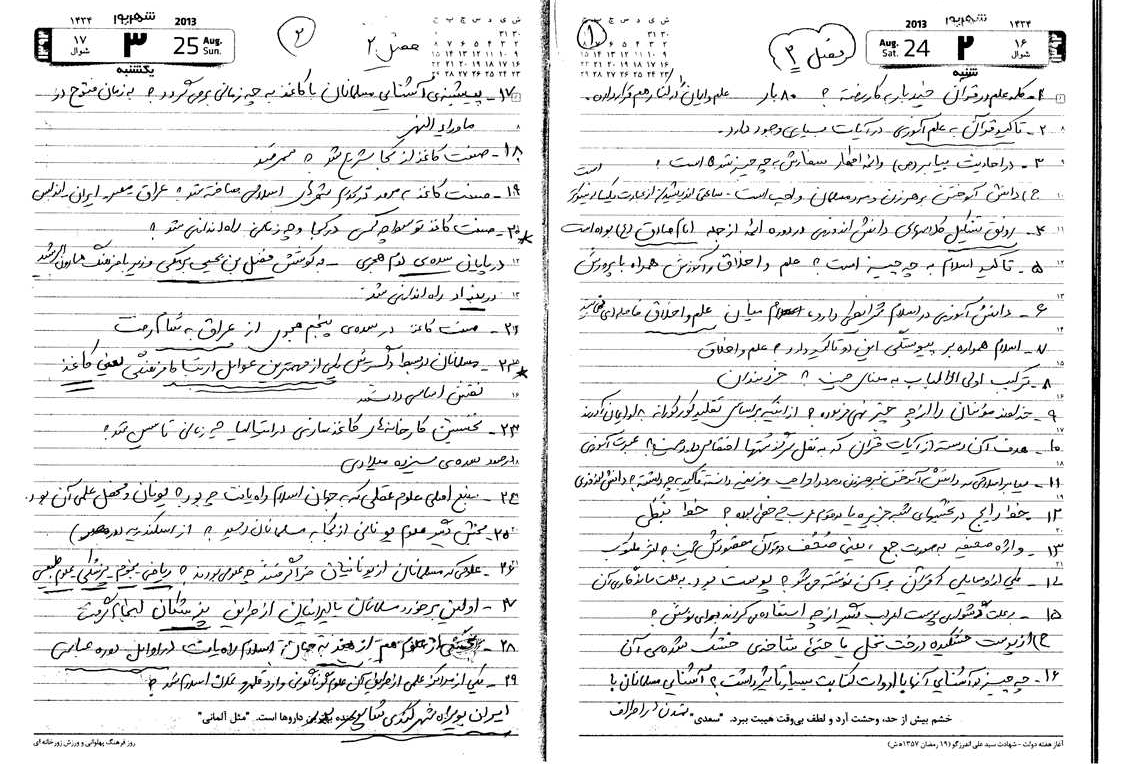 ۱۴۳۴ شهریور 2013
۱۶ شوال ۲ شنبه Aug. Sat. 24 ۱۳۹۲
فصل ۲
۱
۱- کلمه علم در قرآن چند بار به کار رفته ؟ ۸۰ بار علم و ایمان را در کنار هم قرار داده.
۲- تاکید قرآن به علم آموزی در آیات بسیاری وجود دارد.
۳- در احادیث پیامبر (ص) و ائمه اطهار سفارش به چه چیز شده است ؟
ج) دانش آموختن بر هر زن و مرد مسلمان واجب است - ساعتی اندیشیدن از عبادت یکساله نیکوتر است
۴- رونق تشکیل کلاسهای دانش اندوزی در دوره ائمه از جمله امام صادق (ع) بوده است
۵- تاکید اسلام به چه چیز است ؟ علم و اخلاق و آموزش همراه با پرورش
۶- دانش آموزی در اسلام شرایطی دارد، اسلام میان علم و اخلاق فاصله ای نمی بیند
۷- اسلام همواره بر پیوستگی این دو تاکید دارد ؟ علم و اخلاق
۸- ترکیب اولی الالباب به معنای چیست ؟ خردمندان
۹- خداوند مؤمنان را از چه چیز نهی فرموده ؟ از اینکه بر اساس تقلید کورکورانه به او ایمان آورند
۱۰- هدف آن دسته از آیات قرآن که به نقل سرگذشتها اختصاص دارد چیست ؟ عبرت آموزی
۱۱- پیامبر اسلامی که دانش آموختن بر هر زن و مرد را واجب و فریضه دانسته تاکید به چه داشته ؟ دانش اندوزی
۱۲- خط رایج در بخشهای شبه جزیره یا مرسوم عرب چه خطی بوده ؟ خط نبطی
۱۳- واژه صحیفه به صورت جمع، یعنی صُحُف در قرآن مقصودش چیست ؟
۱۴- یکی از وسایلی که قرآن بر آن نوشته می شد ؟ پوست بود. به علت ماندگاری آن
۱۵- به علت گرانی پوست اعراب بیشتر از چه استفاده می کردند برای نوشتن ؟
ج) از پوست خشکیده درخت نخل یا حتی شاخه ی خشک شده ی آن
۱۶- چه چیز در آشنایی آنها با ادوات کتابت بسیار تأثیر داشت ؟ آشنایی مسلمانان با
تمدن اطراف
خشم بیش از حد، وحشت آرد و لطف بی‌وقت هیبت ببرد. "سعدی"
آغاز هفته دولت - شهادت سید علی اندرزگو (۱۹ رمضان ۱۳۵۷ ه‍.ش)
۱۴۳۴ شهریور 2013
۱۳۹۲ ۱۷ شوال ۳ یکشنبه 25 Aug. Sun.
فصل ۲
۲
۱۷- پیشینه ی آشنایی مسلمانان با کاغذ به چه زمانی برمی گردد ؟ به زمان فتوح در
ماوراء النهر
۱۸- صنعت کاغذ از کجا شروع شد ؟ سمرقند
۱۹- صنعت کاغذ، بعد در کدام شهرهای اسلامی ساخته شد ؟ عراق، مصر، ایران، اندلس
۲۰- صنعت کاغذ توسط چه کسی در کجا و چه زمانی راه اندازی شد ؟
در پایان سده ی دوم هجری - به کوشش فضل بن یحیی برمکی وزیر با فرهنگ هارون الرشید
در بغداد راه اندازی شد.
۲۱- صنعت کاغذ در سده ی پنجم هجری از عراق به شام رفت
۲۲- مسلمانان در بسط و گسترش یکی از مهمترین عوامل ارتباط فرهنگی یعنی کاغذ
نقش اساسی داشتند
۲۳- نخستین کارخانه های کاغذ سازی در ایتالیا چه زمانی تأسیس شد ؟
در حدود سده ی سیزده میلادی
۲۴- منبع اصلی علوم عقلی که به جهان اسلام راه یافت چه بود ؟ یونان و محفل علمی آن بود.
۲۵- بخش بیشتر علوم یونانی از کجا به مسلمانان رسید ؟ از اسکندریه (در مصر)
۲۶- علومی که مسلمانان از یونانیان فرا گرفتند چه علومی بودند ؟ ریاضی، نجوم، پزشکی، علوم طبیعی
۲۷- اولین برخورد مسلمانان با ایرانیان از طریق پزشکان انجام گرفت
۲۸- بخشی از علوم هم از هند به جهان اسلام راه یافت در اوایل دوره عباسی
۲۹- یکی از مراکز علمی از طریق آن علوم گوناگونی وارد قلمرو جهان اسلام شد ؟
ایران بویژه شهر گندی شاپور بود
خنده بهترین داروها است. "مثل آلمانی"
روز فرهنگ پهلوانی و ورزش زورخانه ای